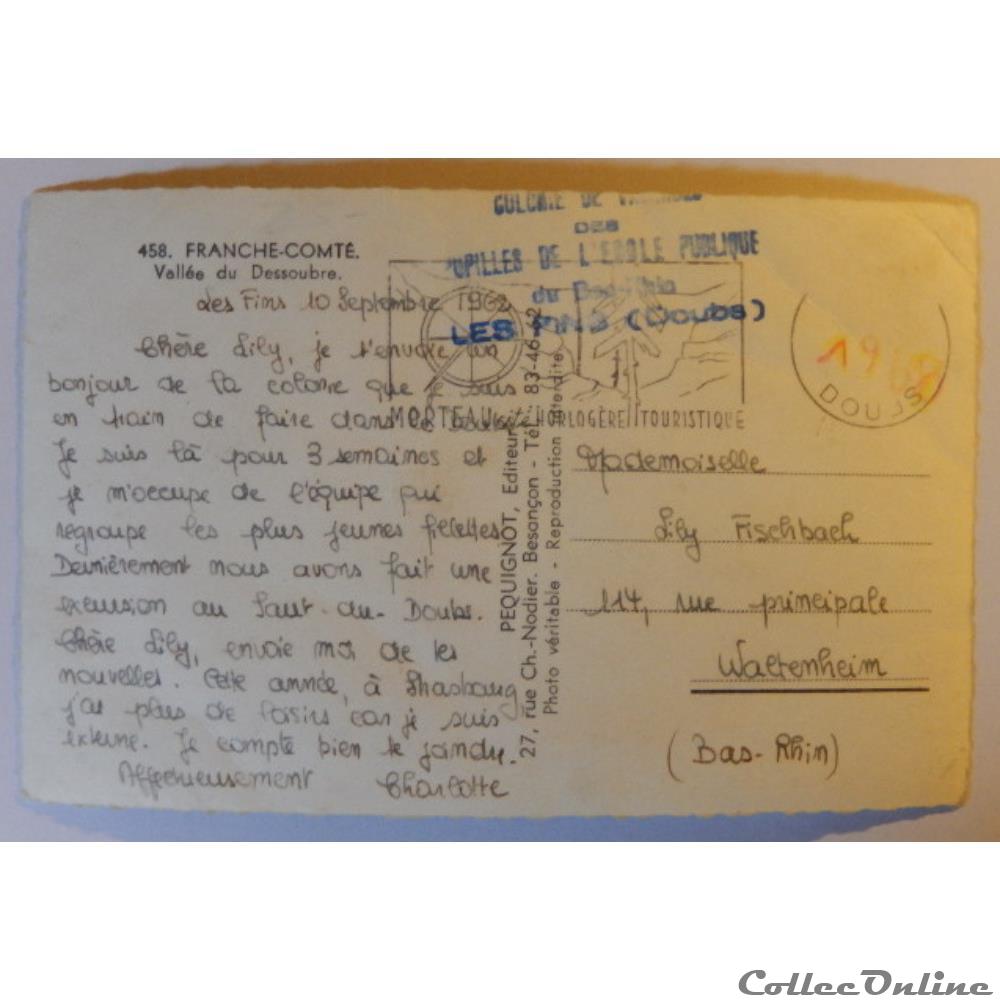 458. FRANCHE-COMTÉ.
Vallée du Dessoubre.
Les Fins 10 Septembre 1962
Chère Lily, je t'envoie un
bonjour de la colonie que je suis
en train de faire dans le
Je suis là pour 3 semaines et
je m'occupe de l'équipe qui
regroupe les plus jeunes fillettes
Dernièrement nous avons fait une
excusion au Saut-du-Doubs.
Chère Lily, envoie moi de tes
nouvelles. Cette année, à Strasbourg,
j'ai plus de loisirs car je suis
externe. Je compte bien te joindre.
Affectueusement Charlotte
PEQUIGNOT, Editeur
27, rue Ch.-Nodier. Besançon - Tél. 83-46-42
Photo véritable - Reproduction interdite
COLONIE DE VACANCES
DES
PUPILLES DE L'ECOLE PUBLIQUE
du Bas-Rhin
LES FINS (Doubs)
MORTEAU cité HORLOGÈRE TOURISTIQUE
DOUBS
Mademoiselle
Lily Fischbach
114, rue principale
Waltenheim
(Bas-Rhin)
CollecOnline